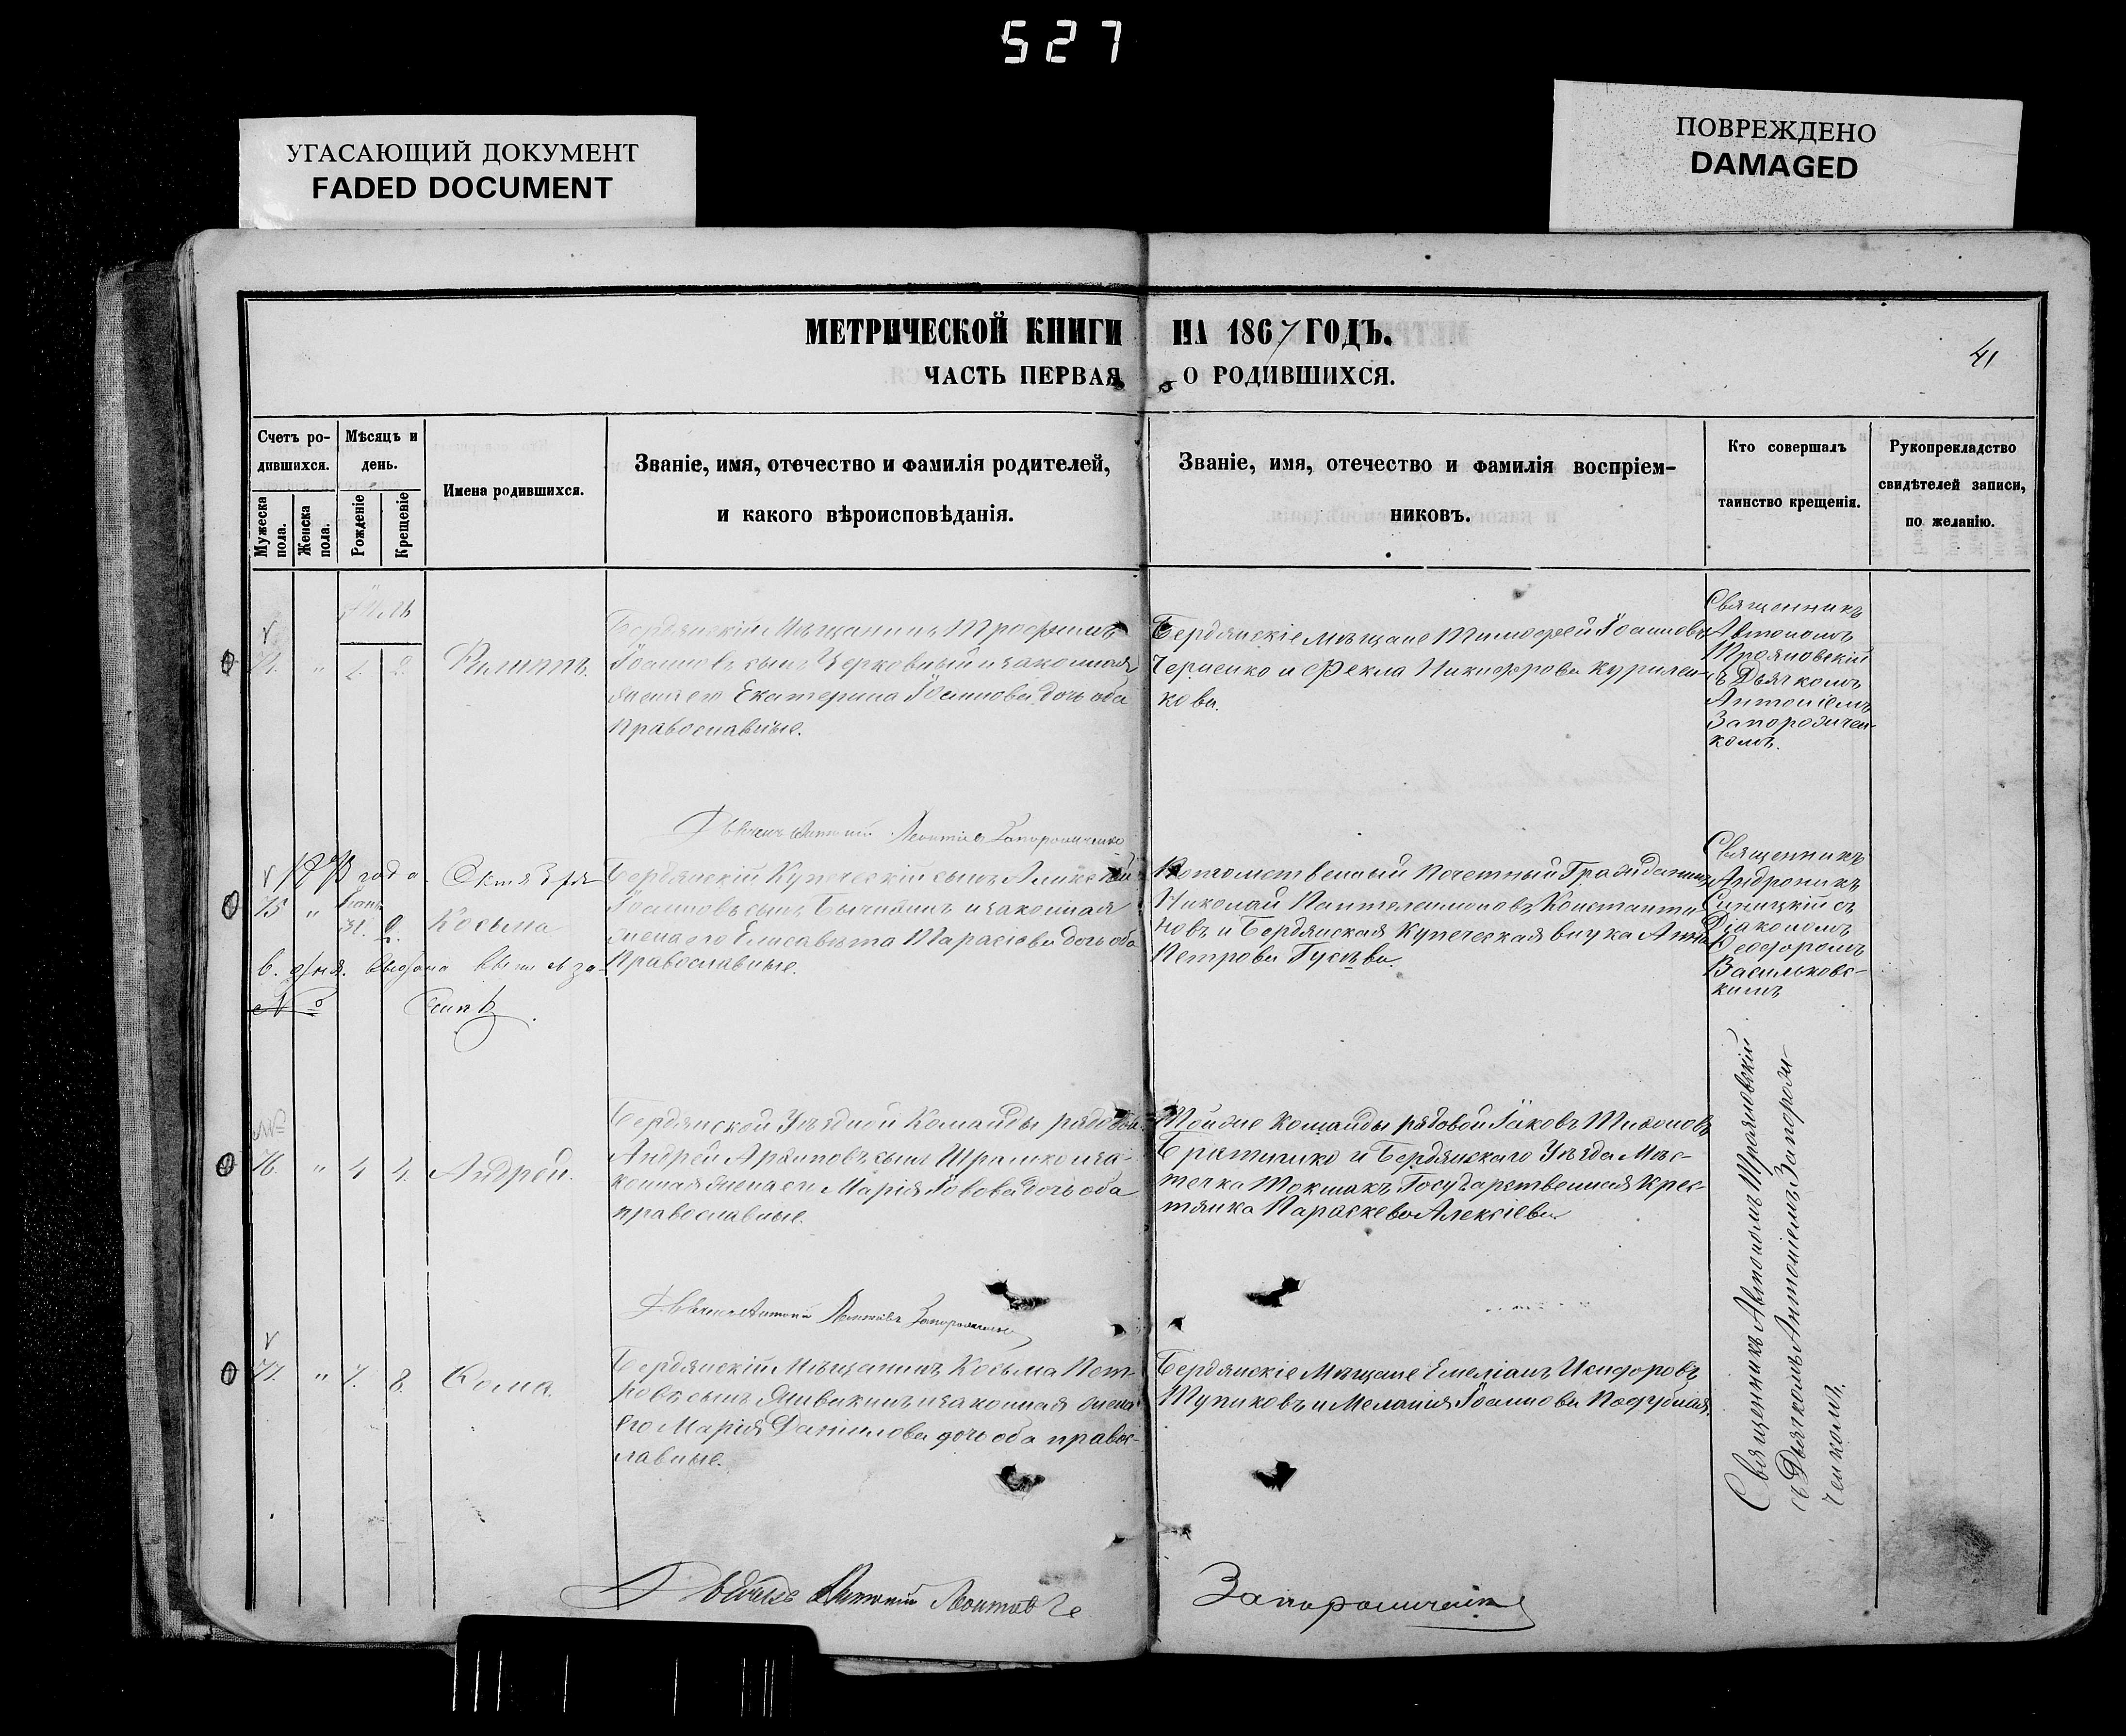 527
УГАСАЮЩИЙ ДОКУМЕНТ
FADED DOCUMENT
ПОВРЕЖДЕНО
DAMAGED
МЕТРИЧЕСКОЙ КНИГИ НА 1867 ГОДЪ.
41
ЧАСТЬ ПЕРВАЯ О РОДИВШИХСЯ.
Счетъ ро-
дившихся.
Мужеска пола.
Женска пола.
Мѣсяцъ и
день.
Рожденіе
Крещеніе
Имена родившихся.
Званіе, имя, отечество и фамилія родителей,
и какого вѣроисповѣданія.
Званіе, имя, отечество и фамилія воспріем-
никовъ.
Кто совершалъ
таинство крещенія.
Рукоприкладство
свидѣтелей записи,
по желанію.
Бердянскій Мѣщанинъ Трофимъ
Іоанновъ сынъ Церковный и законная
жена его Екатерина Іоаннова дочь оба
православные.
Бердянскіе мѣщане Тимофей Іоанновъ
Черненко и Фекла Никифорова Курилен-
кова.
Священникъ
Автономъ
Трояновскій
съ Дьячкомъ
Антоніемъ
Запорожчен-
комъ.
15 " 31. 2. Косьма
Октября
года
в. дня. выдана
№
Бердянскій Купеческій сынъ Алексѣй
Іоанновъ сынъ и законная
жена его Елисавета Тарасіова дочь оба
Православные.
Потомственный Почетный Гражданинъ
Николай Пантелеимоновъ Константи-
новъ и Бердянская Купеческая внучка Анна
Петрова Гусѣва.
Священникъ
Андроникъ
Синицкій съ
Діакономъ
Ѳеодоромъ
Васильковс-
кимъ
16. " 4 4. Андрей.
Бердянской Уѣздной Команды рядовой
Андрей Архиповъ сынъ и за-
конная жена его Марія Іовова дочь оба
православные.
Тойже Команды рядовой Іаковъ Тихоновъ
и Бердянскаго Уѣзда Мѣс-
течка Токмакъ Государственная крес-
тянка Параскева Алексіева
Антоній Леонтіевъ Запорожченко
" 7. 8. Козма.
Бердянскій Мѣщанинъ Косьма Пет-
ровъ сынъ и законная жена
его Марія Даніилова дочь оба правос-
лавные.
Бердянскіе Мѣщане Емеліанъ Исидоровъ
Тупиковъ и Меланія Іоаннова Подубная.
Священникъ Автономъ Трояновскій
съ Дьячкомъ Антоніемъ Запорож-
ченкомъ.
Антоній Запорожченко